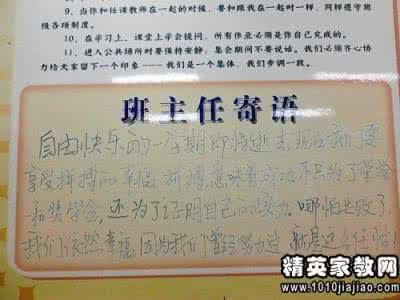 9、当你和任课教师在一起的时候，要和跟我在一起时一样，同样遵守班
级各项制度。
10、在学习上，课堂上学会提问，所有作业必须是你自己完成的。
11、进入公共场所时要保持安静；集会期间不要说话。我们必须齐心协
力给大家留下一个印象——我们是一个集体，我们步调一段。
班主任寄语
自由快乐的一星期即将逝去，现在我们要
享受拼搏的幸福，拼搏意味着成功，不只为了荣誉
和奖学金，还为了证明自己的实力。哪怕失败了，
我们仍然幸福，因为我们曾经努力过，
精英家教网
www.1010jiajiao.com